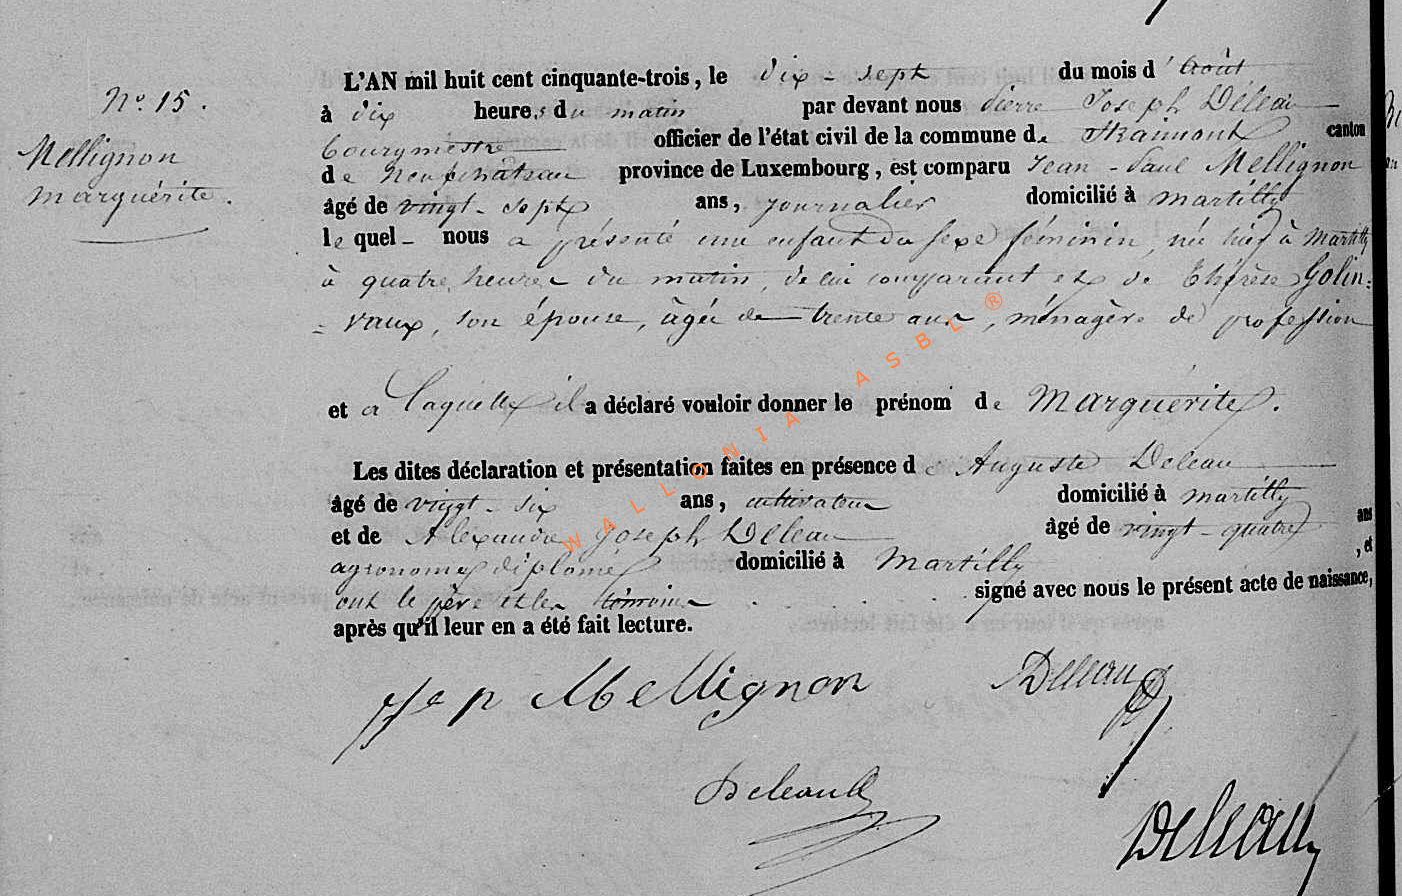 N° 15.
Mellignon
marguérite.
L'AN mil huit cent cinquante-trois, le dix-sept du mois d'Août
à dix heures du matin par devant nous Pierre Joseph Déleau
bourgmestre officier de l'état civil de la commune de Straimont canton
de Neufchâteau province de Luxembourg, est comparu Jean-Paul Mellignon
âgé de vingt-sept ans, journalier domicilié à martilly
le quel nous a présenté une enfant du sexe féminin, née hier à Martilly
à quatre heures du matin, de lui comparant et de Thérèse Golin=
=vaux, son épouse, âgée de trente ans, ménagère de profession
et a laquelle il a déclaré vouloir donner le prénom de Marguérite.
Les dites déclaration et présentation faites en présence de Auguste Deleau
âgé de vingt-six ans, cultivateur domicilié à martilly
et de Alexandre Joseph Deleau âgé de vingt-quatre ans
agronome diplomé domicilié à Martilly, et
ont le père et les témoins signé avec nous le présent acte de naissance,
après qu'il leur en a été fait lecture.
Mellignon Deleau
Deleau
Deleau
WALLONIA ASBL ®